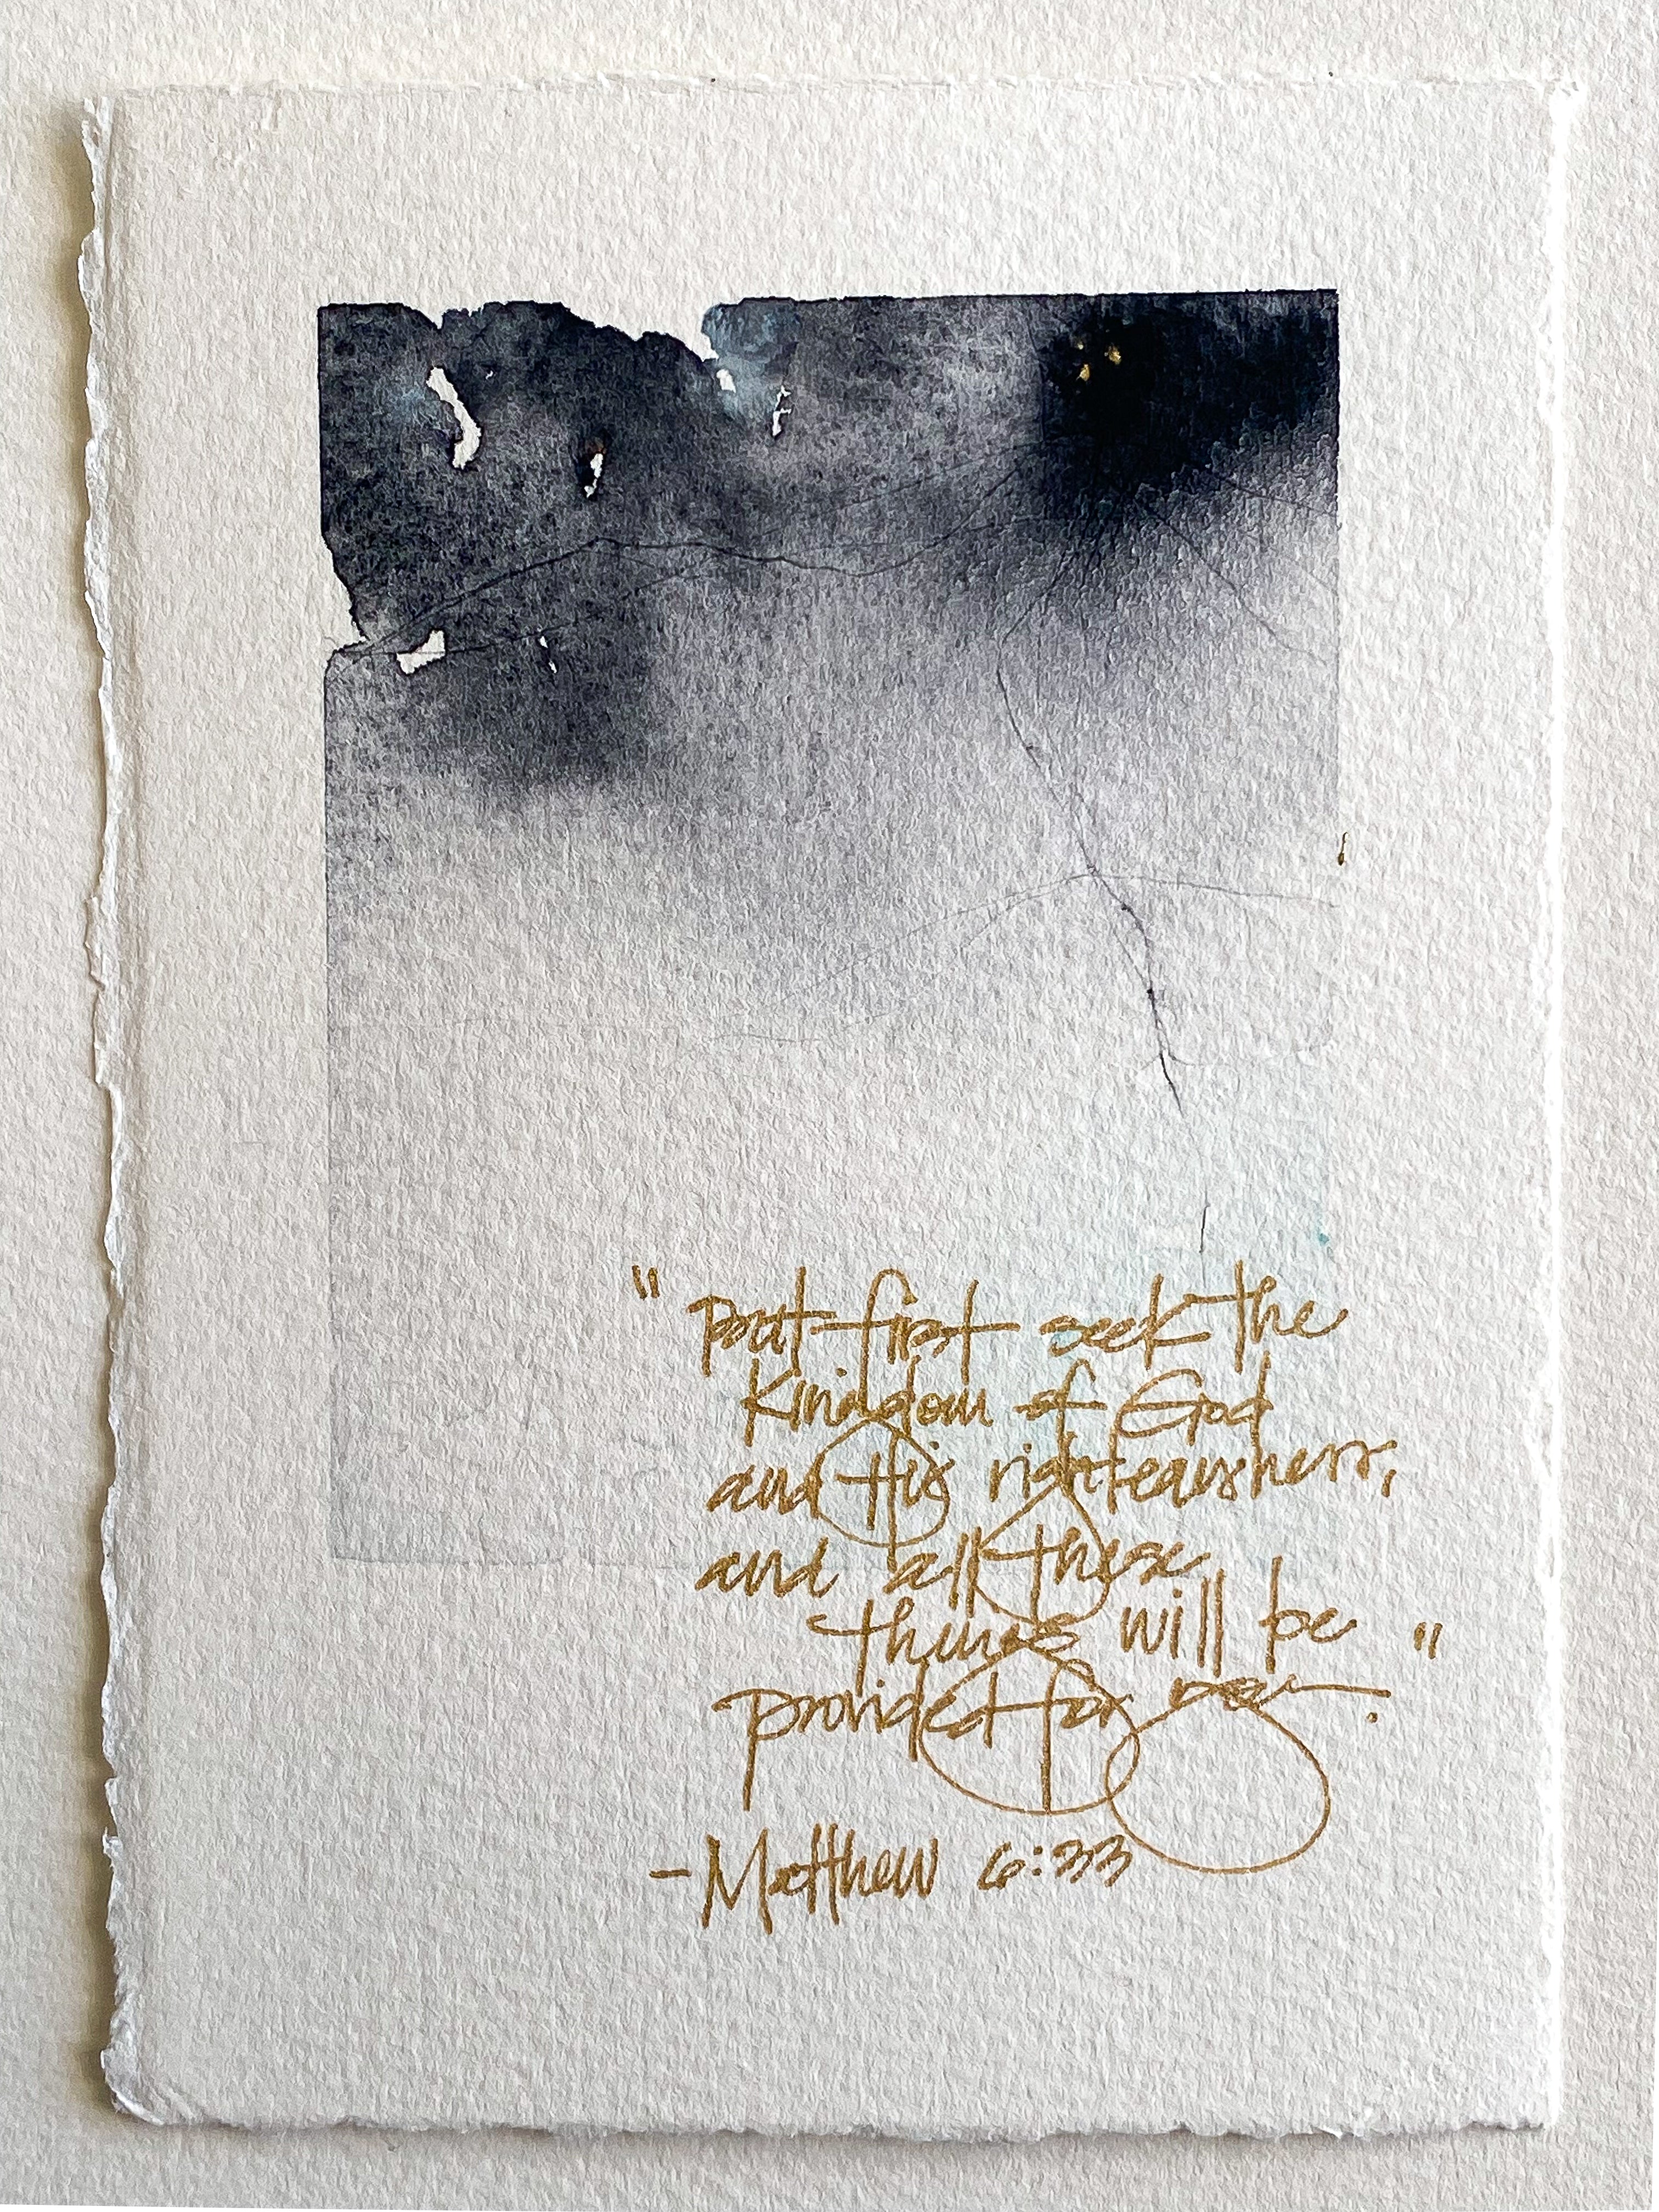 "But first seek the
Kingdom of God
and His righteousness,
and all these
things will be
provided for you."
-Matthew 6:33